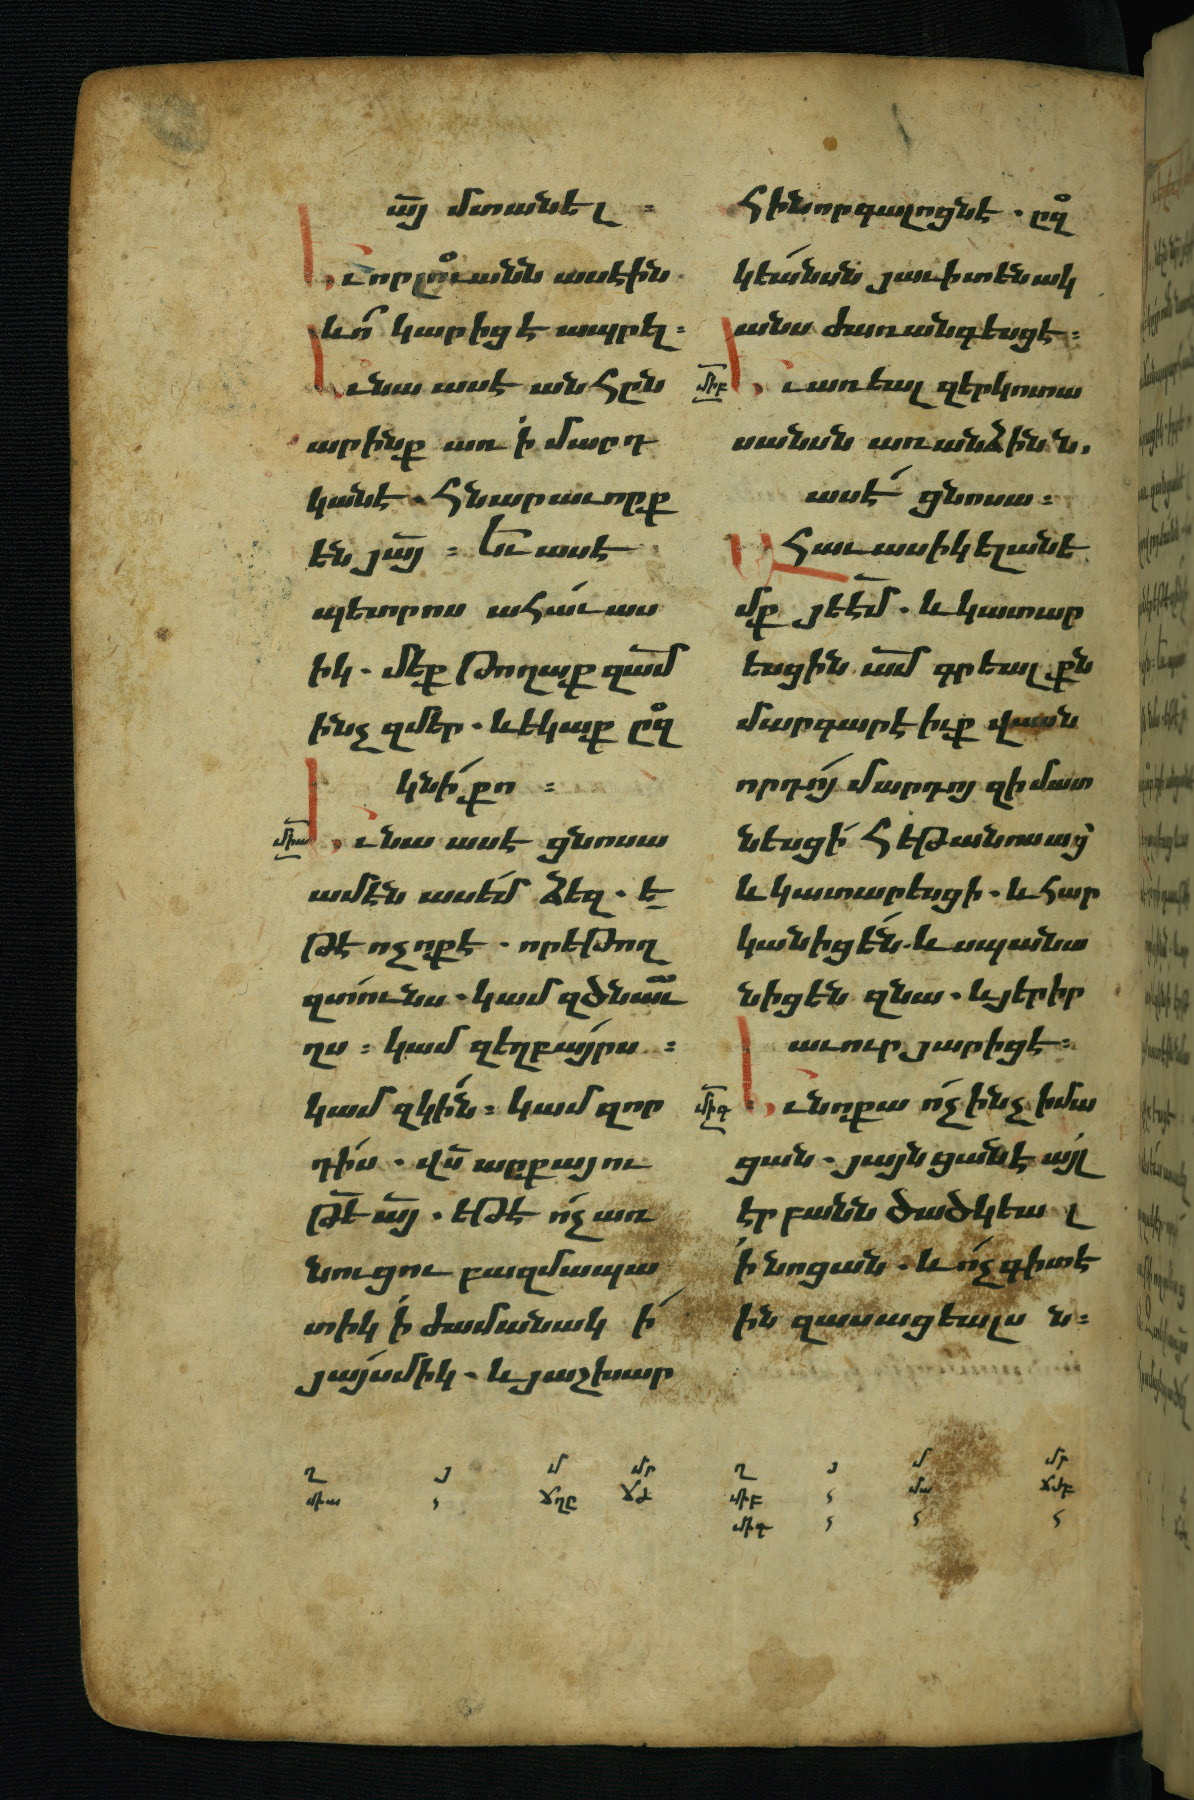 ա՟յ մտանել ։
Եւ որ լո՟ւանն ասէին
և ո՞ կարիցէ ապրել։
Եւ նա ասէ անհըն
արինք առ ի մարդ
կանէ. հնարաւորք
են յա՟յ ։ Եւ ասէ
պետրոս ահաւաս
իկ. մեք թողաք զա՟մ
ինչ զմեր. և եկաք ըզ
կնի քո ։
միա Եւ նա ասէ ցնոսա
ամէն ասեմ ձեզ. ե
թէ ոչ ոք է. որ եթող
զտունս. կամ զծնաւ
ղս ։ կամ զեղբայրս ։
կամ զկին ։ կամ զոր
դիս. վս՟ արքայու
թե՟ ա՟յ. եթէ ոչ առ
նուցու բազմապա
տիկ ի ժամանակ ի
յայսմիկ. և յաշխար
հին որ գալոցնէ. ըզ
կեանսն յաւիտենակ
անս ժառանգեսցէ։
միբ Եւ առեալ զերկոտա
սանսն առանձինն,
ասէ ցնոսա։
Ահաւասիկ ելանե
մք յեէ՟մ. և կատար
եսցին ա՟մ գրեալքն
մարգարէիւք վասն
որդոյ մարդոյ զի մատ
նեսցի հեթանոսաց
և կատարեսցի. և հար
կանիցեն. և սպանա
նիցեն զնա. և յերիր
աւուր յարիցէ։
միգ Եւ նոքա ոչ ինչ իմա
ցան. յայնցանէ այլ
էր բանն ծածկեալ
ի նոցան. և ոչ գիտէ
ին զասացեալսն։
ղ յ մ մր
միա ՙ ճղը ճժ
ղ յ մ մր
միբ ՙ մա ճժբ
միգ ՙ ՙ ՙ